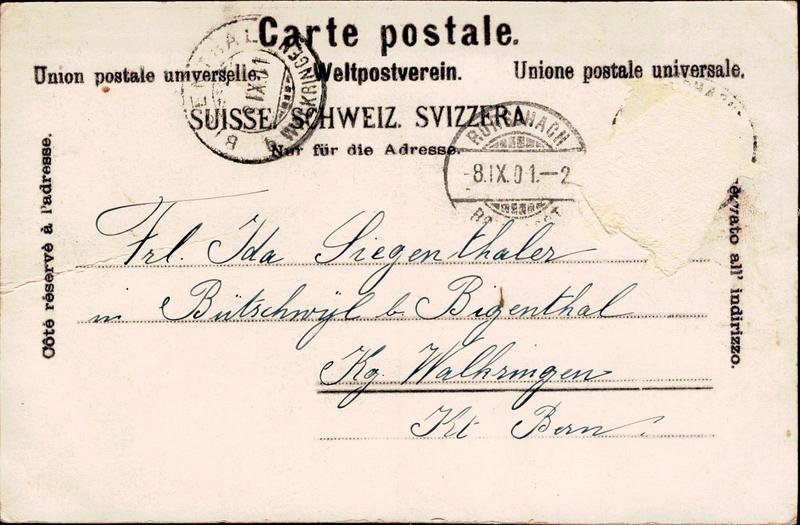 Carte postale.
Union postale universelle. Weltpostverein. Unione postale universale.
SUISSE. SCHWEIZ. SVIZZERA
Nur für die Adresse.
Côté réservé à l'adresse.
all' indirizzo.
RORSCHACH
-8.IX.01.-2
IX 01
Frl. Ida Siegenthaler
in Bütschwyl b. Bigenthal
Kg. Walkringen
Kt Bern.